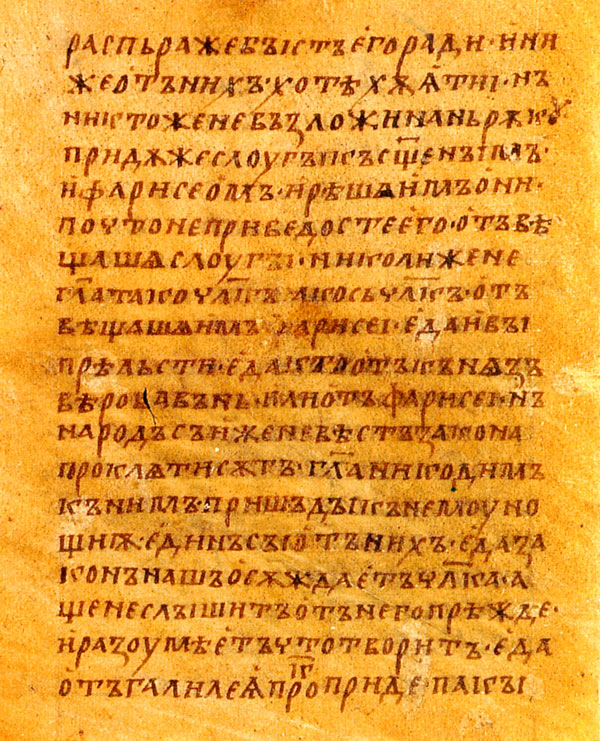 распьраже бꙑстъ его ради · ини
же отъ нихъ · хотѣхѫ ѩти і · нъ
никтоже не възложи на нь рѫкоу
придѫ же слоугꙑ къ сщ҃енꙑмъ ·
и фарисеомъ · и рѣшѧ имъ они ·
по чьто не приведосте его · отъвѣ
щашѧ слоугꙑ · николиже не
гл҃а тако чл҃къ ꙗко сь чл҃къ · отъ
вѣщашѧ имъ фарисеі · еда и вꙑ
прѣльсти · еда кто отъ кънѧзъ
вѣрова въ нь · или отъ фарисеи · нъ
народъ сь иже не вѣстъ закона
проклѧти сѫтъ · гл҃а никодимъ
къ нимъ · пришьдꙑ къ немоу но
щиѭ · единъ сꙑ отъ нихъ · еда за
конъ нашъ осѫждаетъ чл҃ка · а
ще не слꙑшитъ отъ него прѣжде ·
и разоумѣетъ что творитъ · еда
отъ галилеѧ прокъ приде · пакꙑ